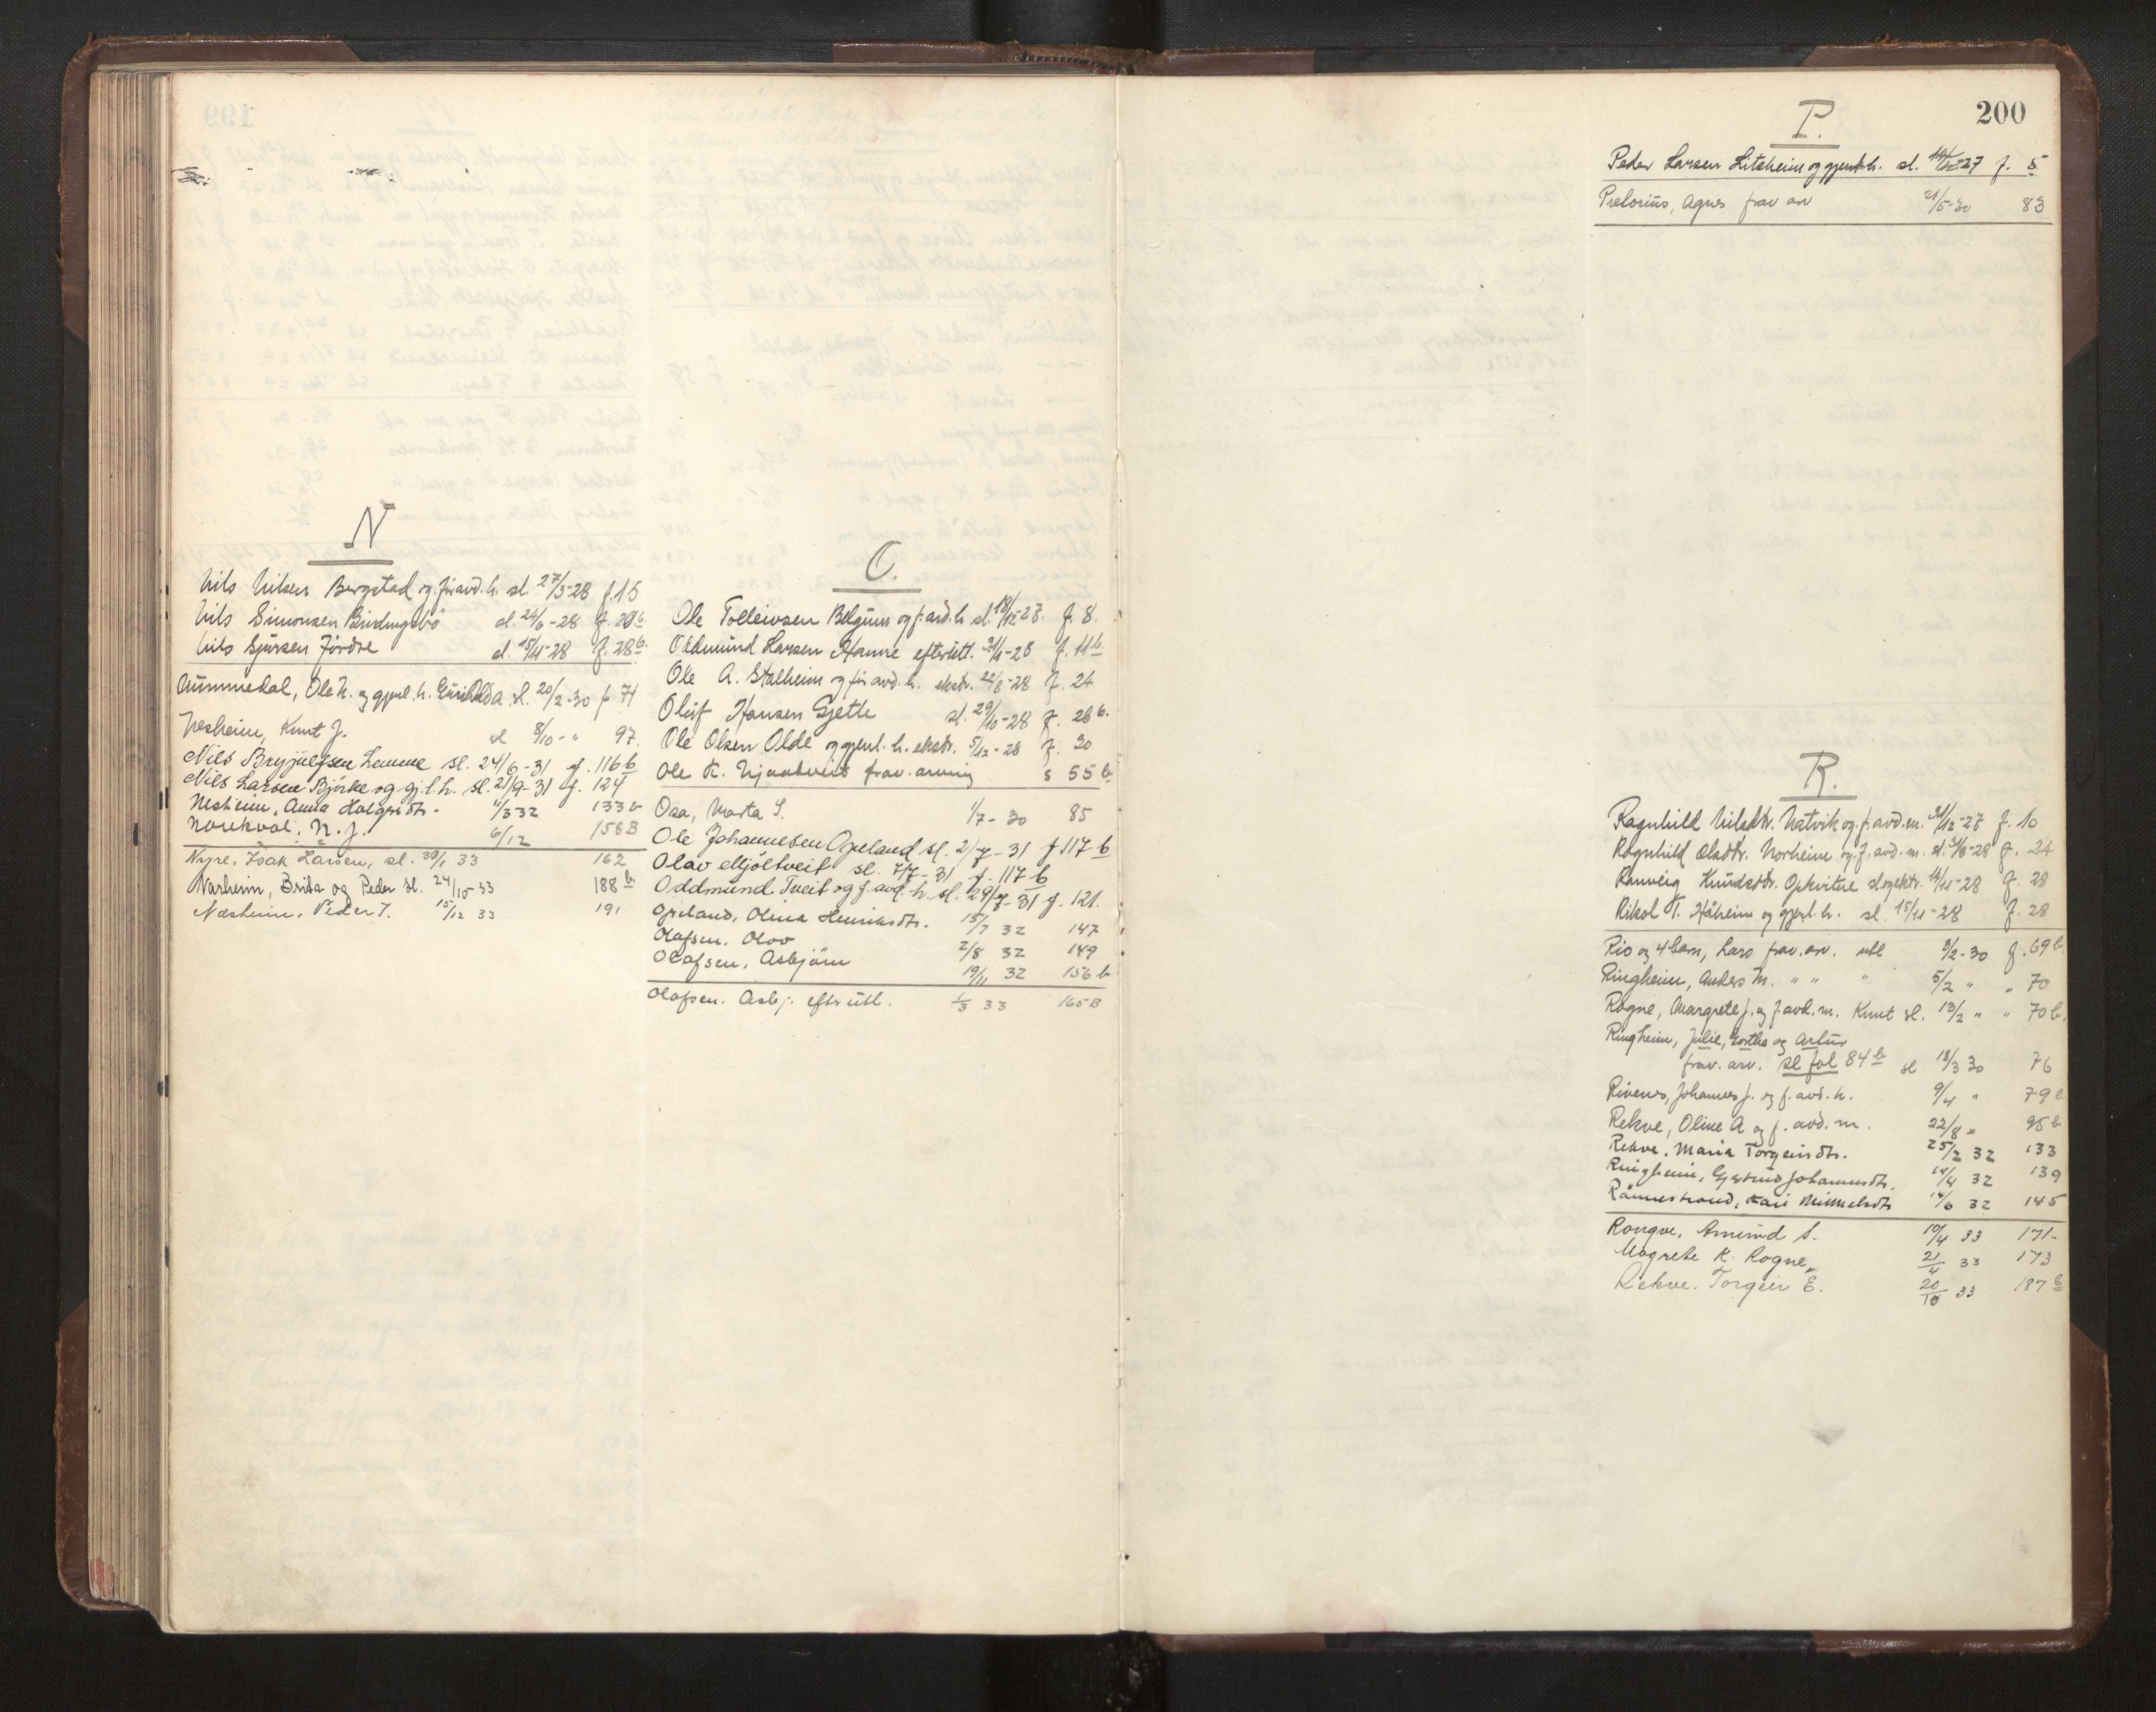 N
Nils Nilsen Bergstad og føravd. h. sl. 27/3-28 f. 15
Nils Simonsen sl. 24/6-28 f. 20b
Nils Sjursen Jordre sl. 15/11-28 f. 28b
Nummedal, Ole N. og gjenl. h. sl. 20/2-30 f 74
Nesheim, Knut J. sl 8/10 - " 97
Nils Brynjulfsen Lemme sl. 24/6-31 f. 116b
Nils Larsen Bjørke og gj. l. h. sl. 21/9-31 f. 124
Nesheim, Anna Holgersdtr. 11/3 32 133b
N. J. 6/12 158B
Nyre, Isak Larsen, sl. 30/1 33 162
Narheim, Brita og Peder sl. 24/10-33 188b
Næsheim, Peder J. 15/12 33 191
O.
Ole Tolleivsen Bolgum og f. avd. h sl. 18/12-27. f. 8.
Oddmund Larsen Hanne efterutl. 31/1-28 f. 11b
Ole A. Stalheim og før avd. h. ekstr. 22/8-28 f. 24
Oluf Hansen Gjette sl. 29/10-28 f. 26b.
Ole Olsen Olde og gjenl. h. ekstr. 5/12-28 f. 30
Ole K. frav. arving s 55b
Osa, Marta S. 1/7-30 85
Ole Johannesen Opeland sl. 2/7-31 f 117b
Olav Mjöltveit sl. 7/7-31 f. 117b
Oddmund Tveit og f. avd. h. sl. 29/7-31 f. 121.
Opeland, Olina Henriksdtr. 15/7 32 147
Olafsen. Olav 2/8 32 149
Olafsen, Asbjörn 19/11 32 156b
Olafsen. Asbj. eftr utl. 1/3 33 165B
200
P.
Peder Larsen Litsheim og gjenl. h. sl. 14/12-27 f. 5
Pretorius, Agnes frav arv 21/5-30 83
R.
Ragnhild Nilsdtr. Natvik og f. avd. m. 31/12-27 f. 10
Ragnhild Olsdtr. Norheim og f. avd. m. sl. 31/8-28 f. 24
Ranveig Knudsdtr. Opkvitne sl og ekstr. 14/11-28 f. 28
Rikol T. Håheim og gjenl. h. sl. 15/11-28 f. 28
Rio og 4 barn, Lars frav. arv. utl 3/2-30 f. 69b
Ringheim, Anders M. " " " 5/2 " " 70
Rogne, Margrete J. og f. avd. m. Knut sl. 13/2 " " 70b.
Ringheim, Julie, og Artur
frav. arv. sl fol 84b sl 18/3 30 76
Rivenes, Johannes J. og f. avd. h. 9/4 " 79b
Rekve, Oline A og f. avd. m. 22/8 " 95b
Rekve. Maria Torgeirsdtr. 25/2 32 133
Ringheim, Gjertrud Johannesdtr. 14/4 32 139
Rånnestrand, Kari Mikkelsdtr 14/6 32 145
Rongve, Amund S. 19/4 33 171.
Magrete K. Rogne, 21/4 33 173
Rekve. Torgeir E. 20/10 33 187b